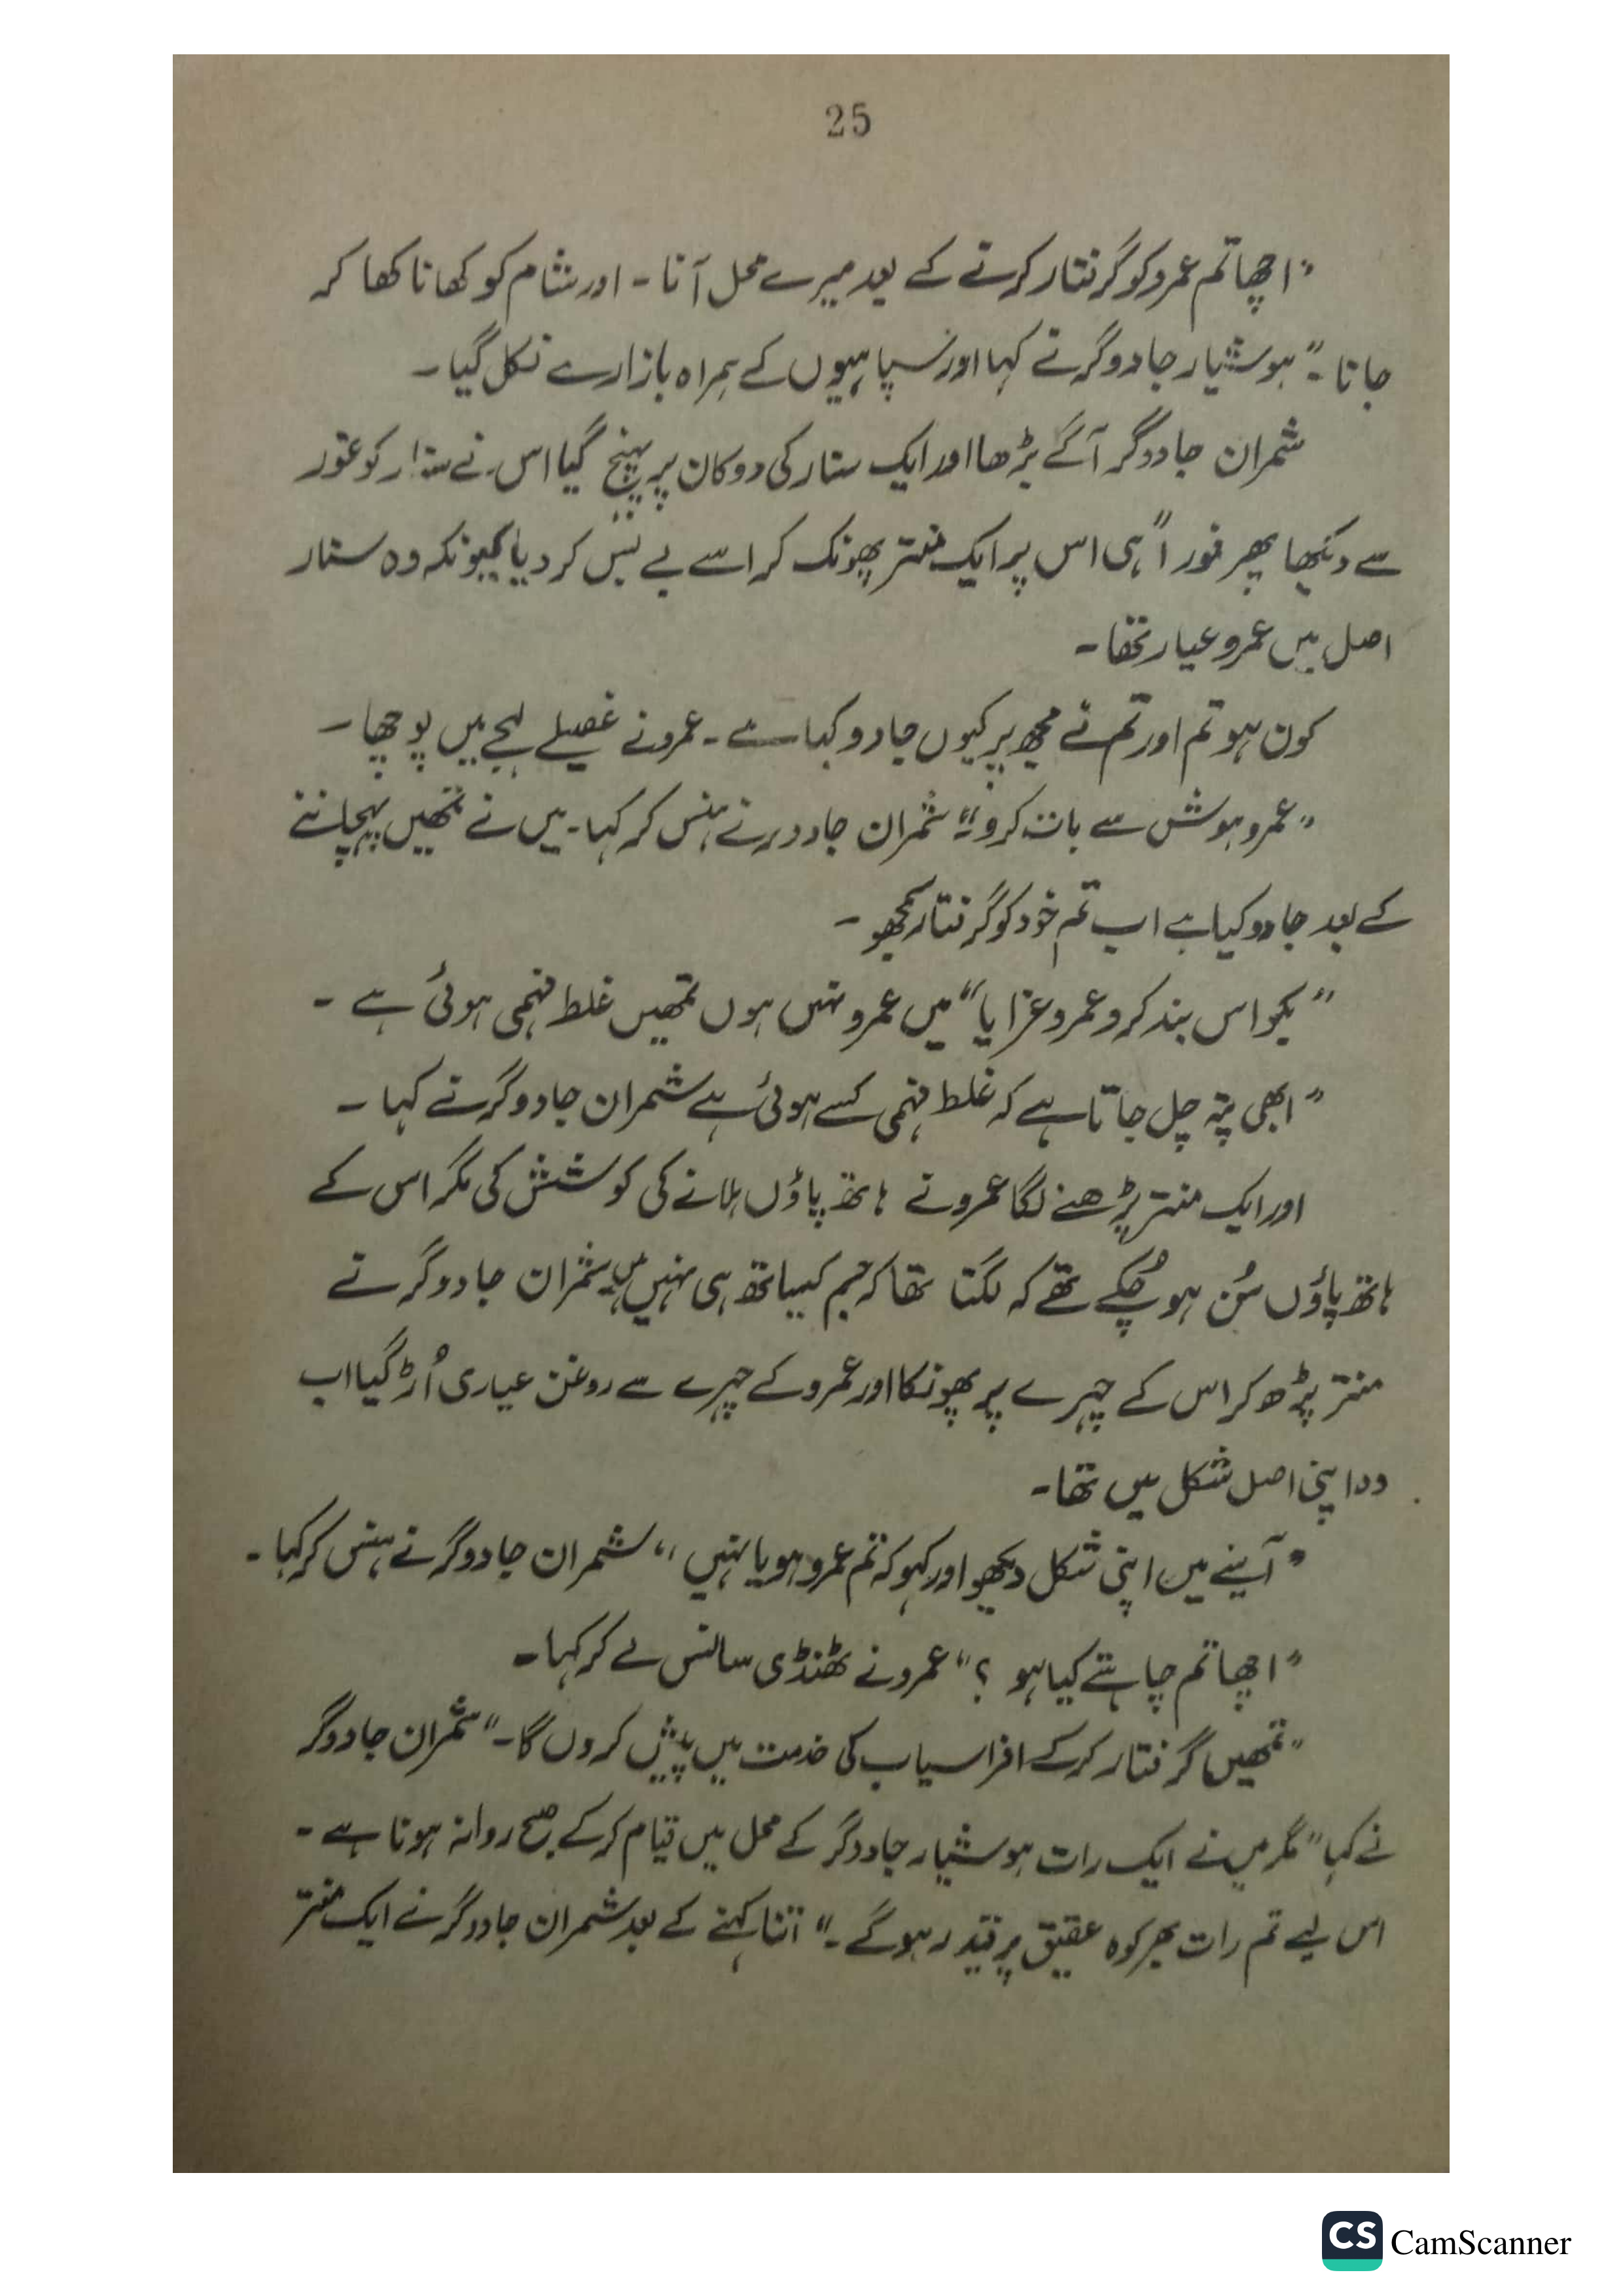 25
"اچھا تم عمرو کو گرفتار کرنے کے بعد میرے محل آنا ۔ اور شام کو کھانا کھا کر
جانا ۔" ہوشیار جادوگر نے کہا اور سپاہیوں کے ہمراہ بازار سے نکل گیا ۔
شمران جادوگر آگے بڑھا اور ایک سنار کی دوکان پر پہنچ گیا اس نے سنار کو غور
سے دیکھا پھر فوراً ہی اس پر ایک منتر پھونک کر اسے بے بس کر دیا کیونکہ وہ سنار
اصل میں عمرو عیار تھا ۔
کون ہو تم اور تم نے مجھ پر کیوں جادو کیا ہے ۔ عمرو نے غصیلے لہجے میں پوچھا ۔
"عمرو ہوش سے بات کرو ۔" شمران جادوگر نے ہنس کر کہا ۔ میں نے تمھیں پہچاننے
کے بعد جادو کیا ہے اب تم خود کو گرفتار سمجھو ۔
"بکواس بند کرو عمرو غرایا" میں عمرو نہیں ہوں تمھیں غلط فہمی ہوئی ہے ۔
"ابھی پتہ چل جاتا ہے کہ غلط فہمی کسے ہوئی ہے شمران جادوگر نے کہا ۔
اور ایک منتر پڑھنے لگا عمرو نے ہاتھ پاؤں ہلانے کی کوشش کی مگر اس کے
ہاتھ پاؤں سُن ہو چُکے تھے کہ لگتا تھا کہ جسم کیساتھ ہی نہیں ہیں شمران جادوگر نے
منتر پڑھ کر اس کے چہرے پر پھونکا اور عمرو کے چہرے سے روغن عیاری اُڑ گیا اب
وہ اپنی اصل شکل میں تھا ۔
"آئینے میں اپنی شکل دیکھو اور کہو کہ تم عمرو ہو یا نہیں" شمران جادوگر نے ہنس کر کہا ۔
"اچھا تم چاہتے کیا ہو ؟" عمرو نے ٹھنڈی سانس لے کر کہا ۔
"تمھیں گرفتار کرکے افراسیاب کی خدمت میں پیش کروں گا ۔" شمران جادوگر
نے کہا" مگر میں نے ایک رات ہوشیار جادوگر کے محل میں قیام کرکے صبح روانہ ہونا ہے ۔
اس لیے تم رات بھر کوہ عقیق پر قید رہو گے ۔" اتنا کہنے کے بعد شمران جادوگر نے ایک منتر
CS CamScanner